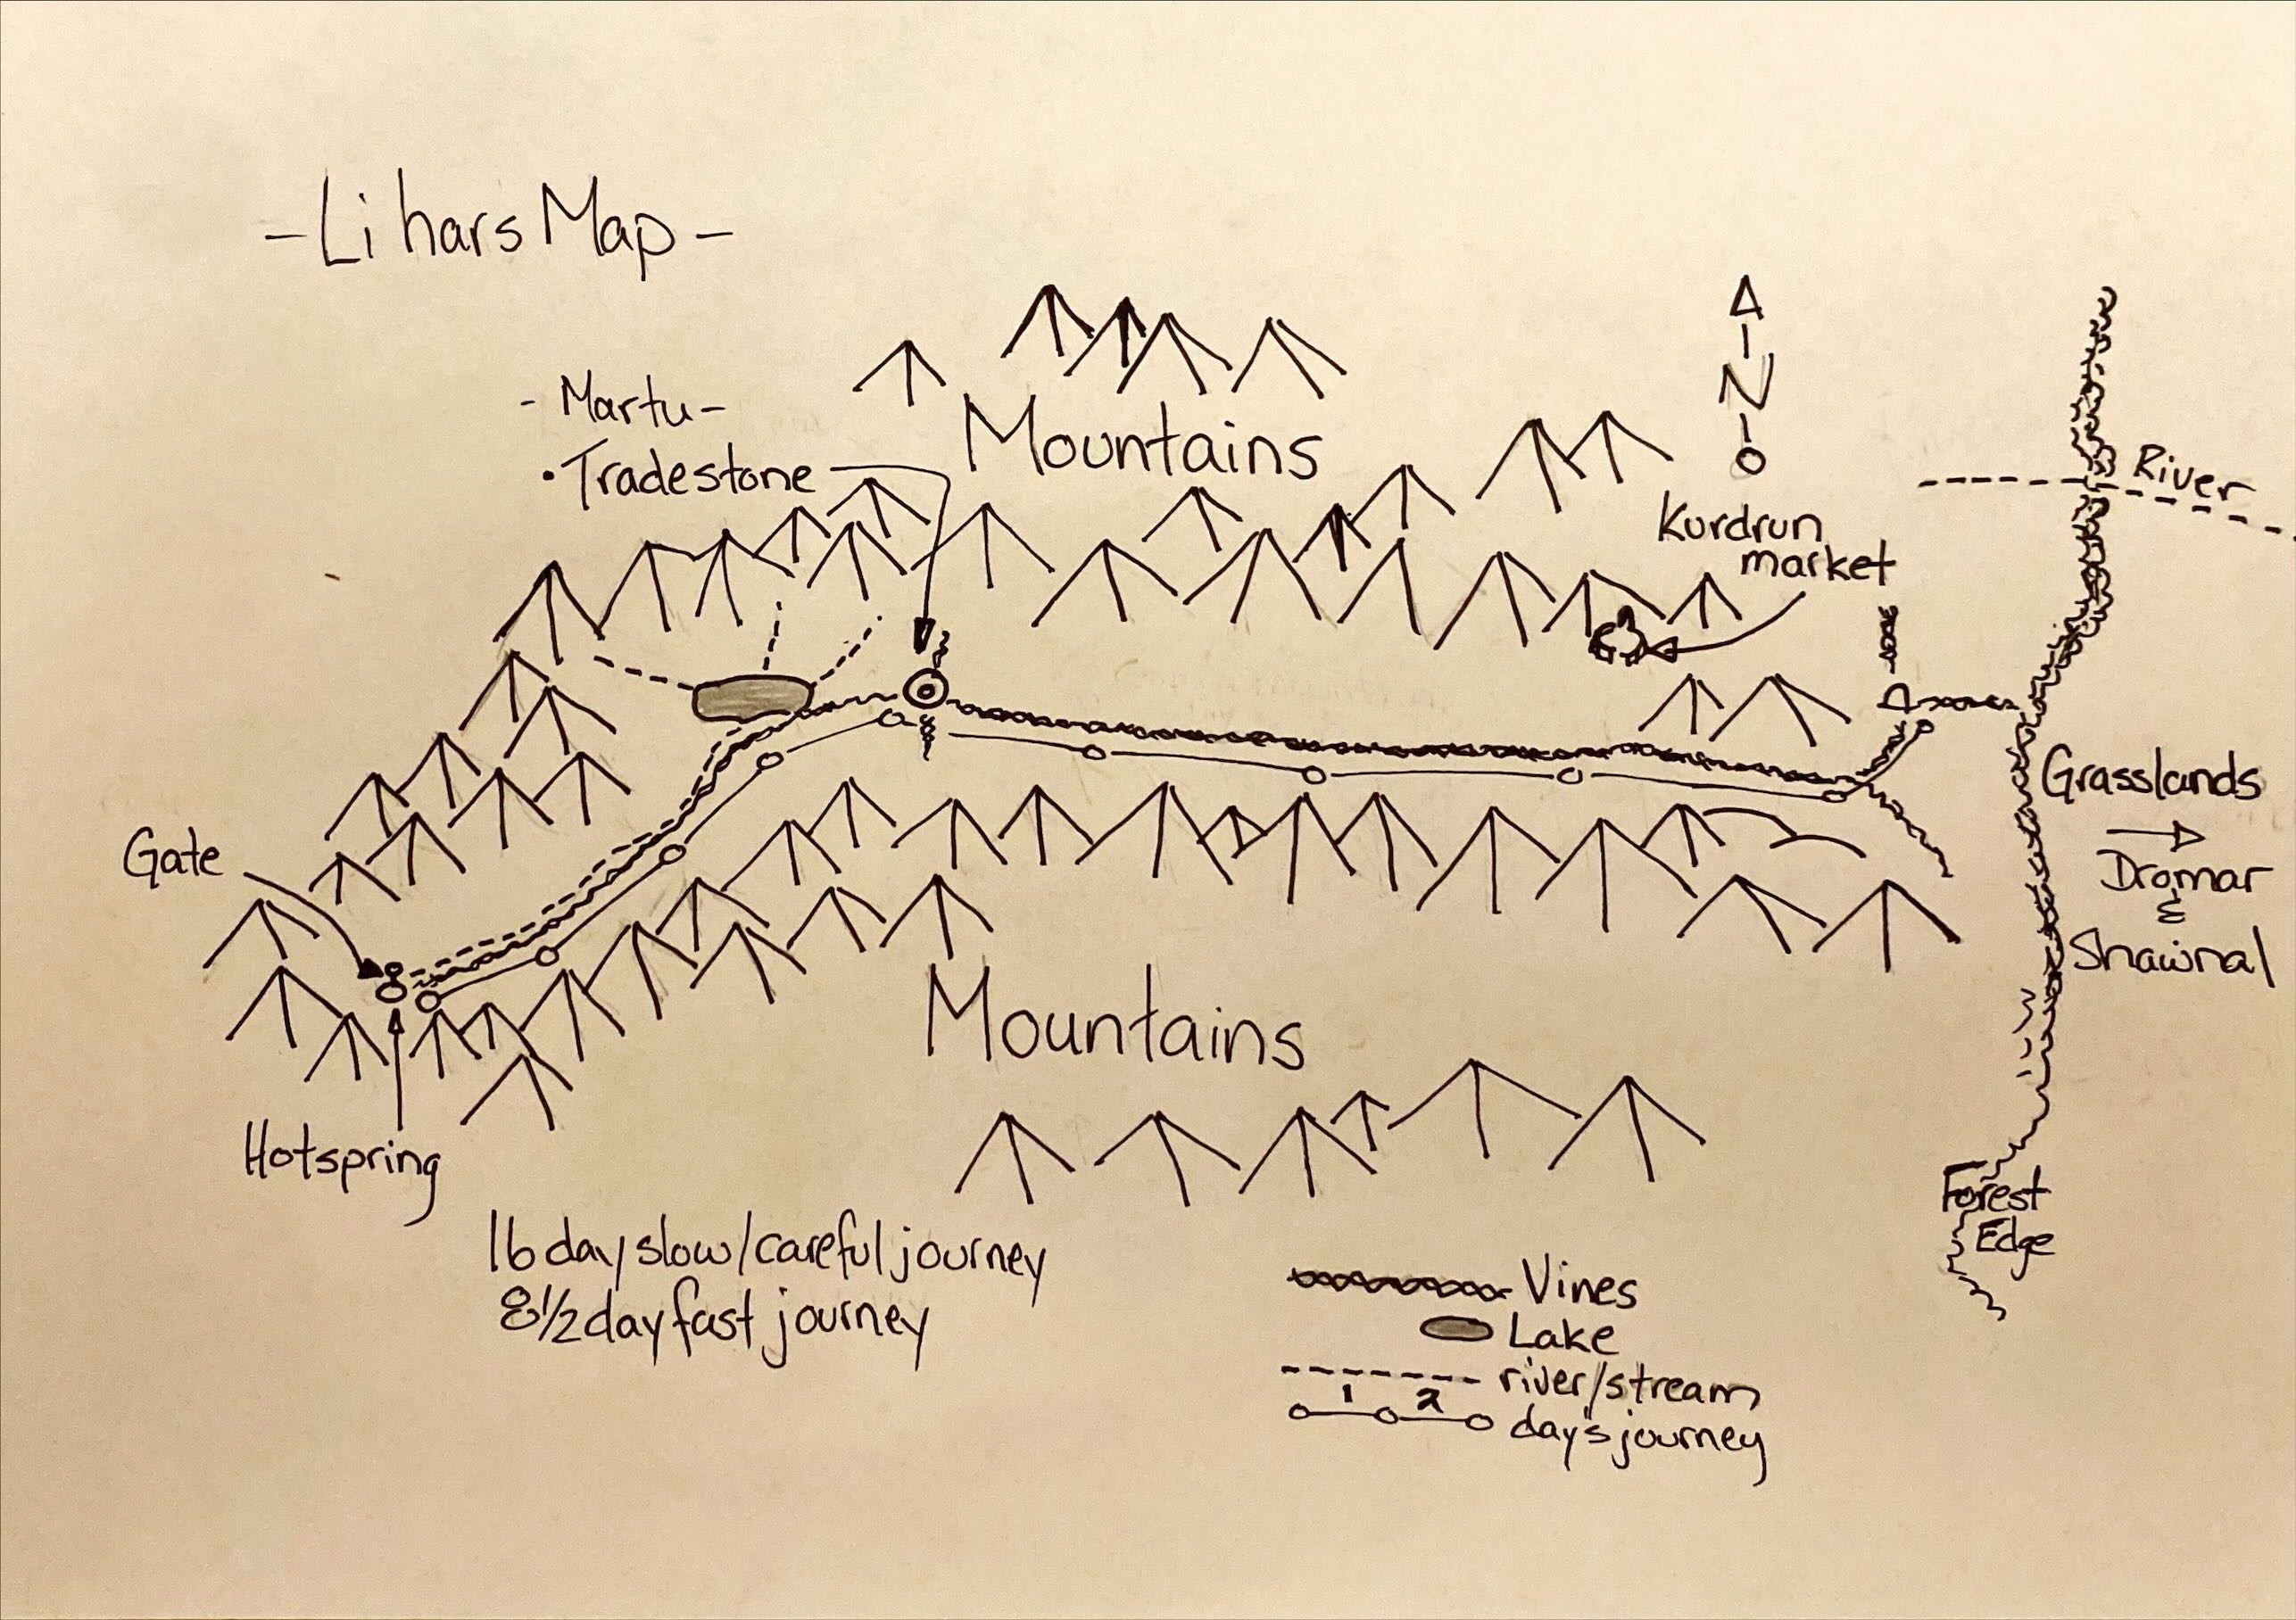 - Lihars Map -
- Martu -
• Tradestone
Mountains
N
River
Kordrun
market
Gate
Grasslands
Dromar
&
Shawnal
Mountains
Hotspring
Forest
Edge
16 day slow/careful journey
8 1/2 day fast journey
Vines
Lake
river/stream
1 2
day's journey